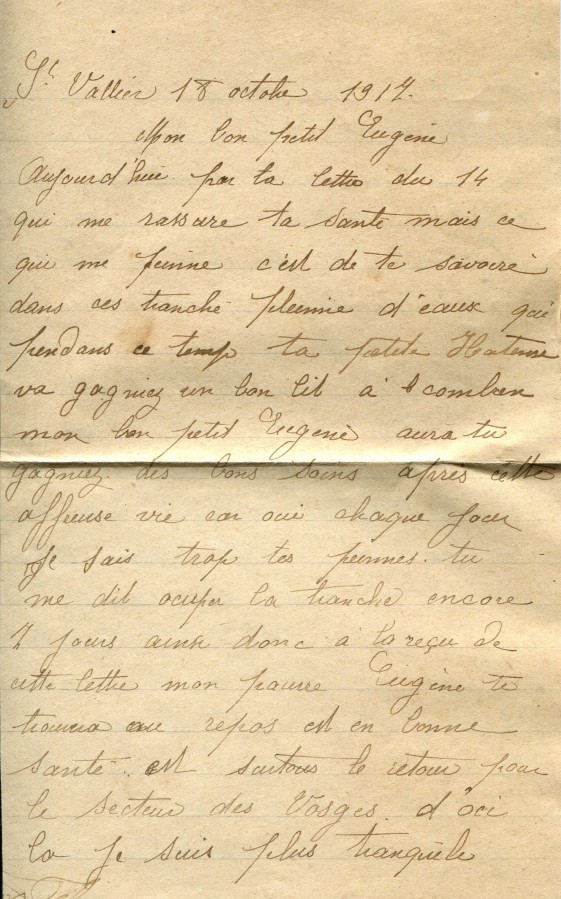 St Vallier 18 octobre 1917.
Mon bon petit Eugène
Aujourd'hui par ta lettre du 14
qui me rassure ta santé mais ce
qui me peinne c'est de te savoire
dans ces tranché pleinne d'eaux qui
pendans ce temp ta petite Hortense
va gagniez un bon lit à combien
mon bon petit Eugène aura tu
gagniez des bons soins après cette
affreuse vie car oui chaque jour
Je sais trop tes peinnes. tu
me dit ocuper la tranché encore
7 jours ainsi donc à la reçu de
cette lettre mon pauvre Eugène te
trouvera au repos est en bonne
santé. est surtous le retour pour
le secteur des Vosges. d'ici
la Je suis plus tranquile